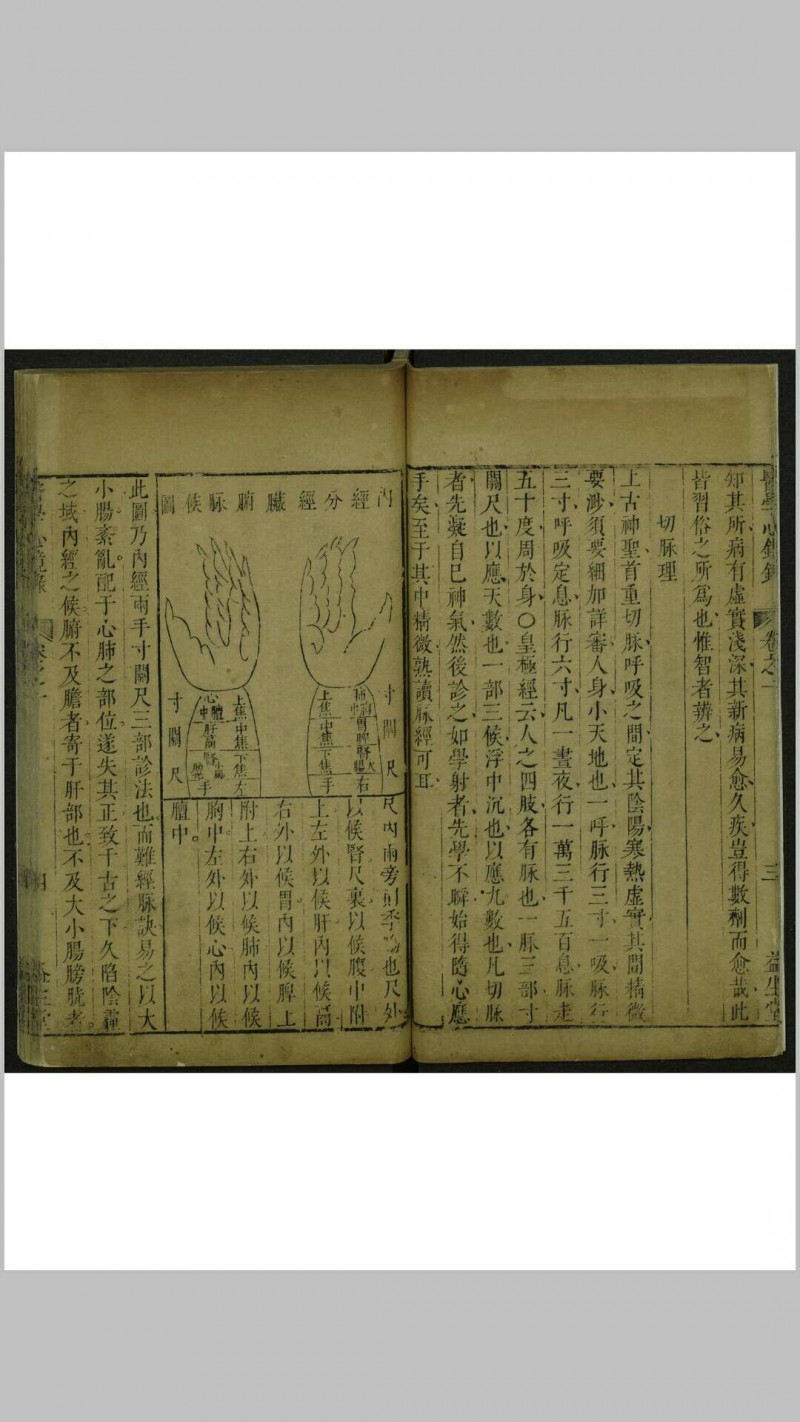 醫學心鏡錄 卷之一 三 益生堂
知其所病有虛實淺深其新病易愈久疾豈得數劑而愈哉此
皆習俗之所爲也惟智者辨之
切脉理
上古神聖首重切脉呼吸之間定其陰陽寒熱虛實其間精微
要渺須要細加詳審人身小天地也一呼脉行三寸一吸脉行
三寸呼吸定息脉行六寸凡一晝夜行一萬三千五百息脉走
五十度周於身〇皇極經云人之四肢各有脉也一脉三部寸
關尺也以應天數也一部三候浮中沉也以應九數也凡切脉
者先凝自己神氣然後診之如學射者先學不瞬始得隨心應
手矣至于其中精微熟讀脉經可耳
內經分經臟腑脉候圖
寸關尺
上焦中焦下焦
右手
寸關尺
上焦中焦下焦
左手
尺內兩旁則季脇也尺外
以候腎尺裏以候腹中附
上左外以候肝內以候膈
右外以候胃內以候脾上
附上右外以候肺內以候
胸中左外以候心內以候
膻中。
此圖乃內經兩手寸關尺三部診法也而難經脉訣易之以大
小腸紊亂配于心肺之部位遂失其正致千古之下久陷陰霾
之域內經之候腑不及膽者寄于肝部也不及大小腸膀胱者
醫學心鏡錄 卷之一 四 益生堂